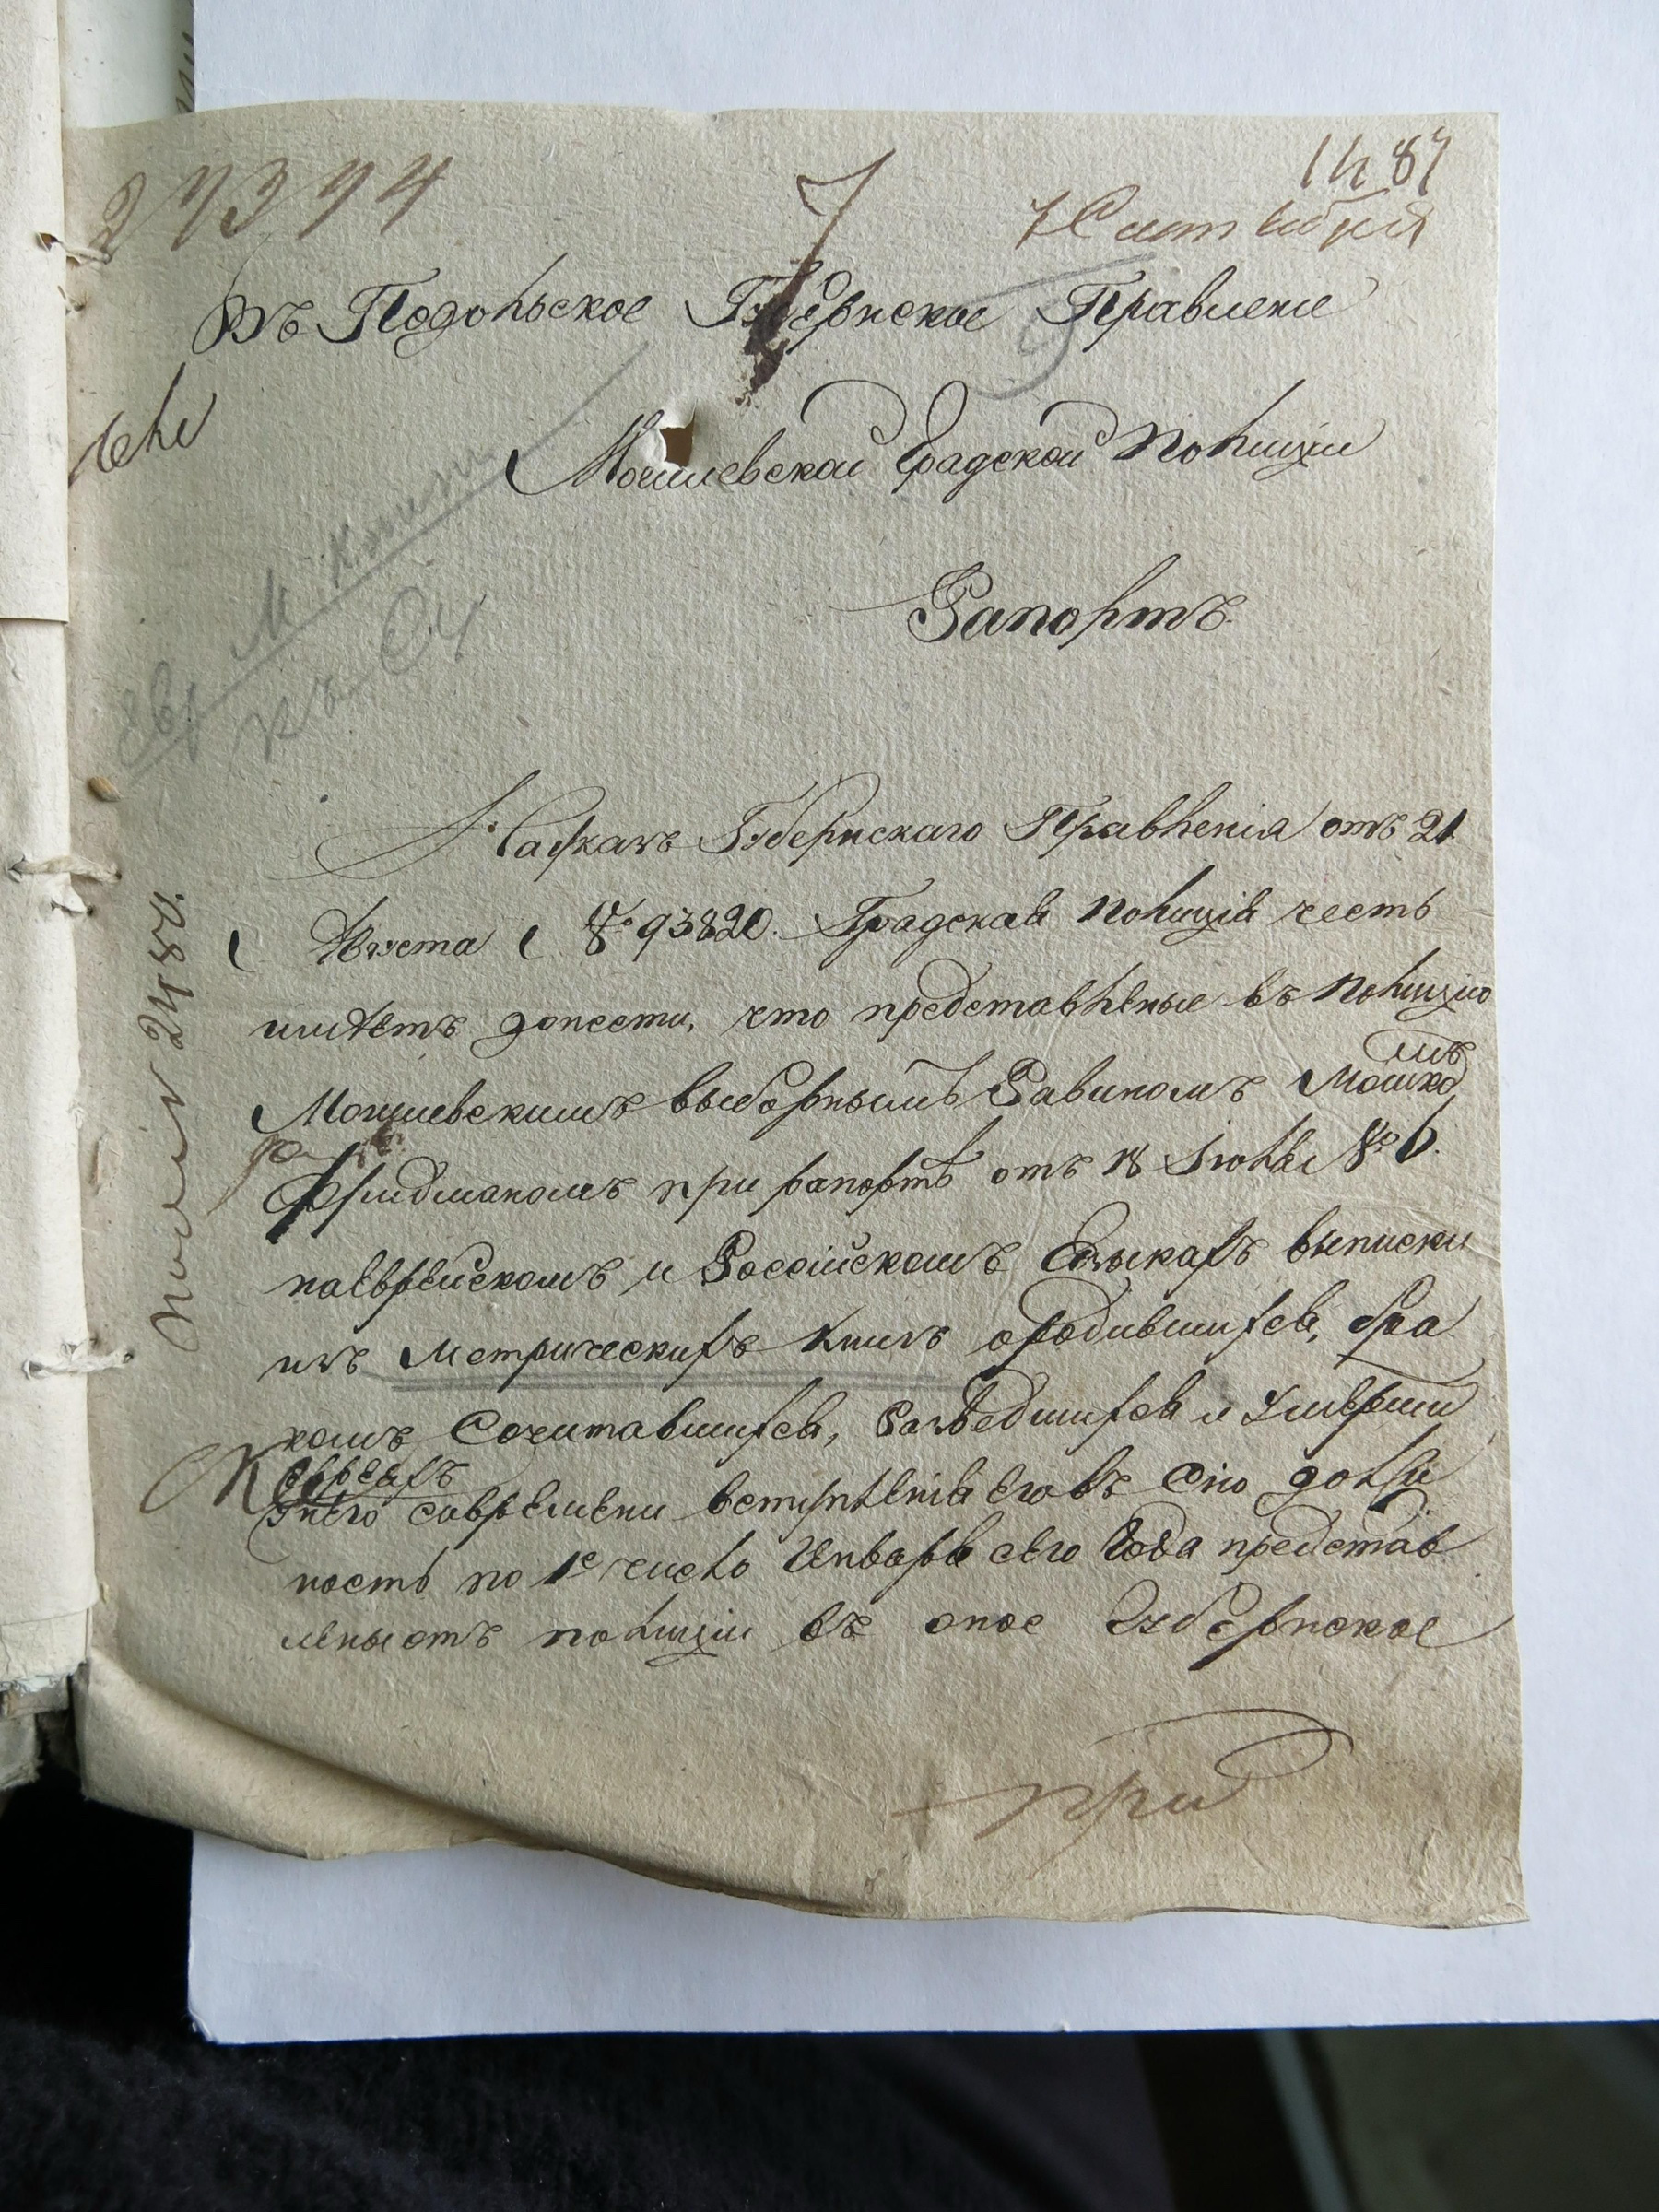 27394
7
1487
7 Сентября
Въ Подольское Губернское Правление
Могилевской Градской Полиции
Рапортъ
На указъ Губернскаго Правленія отъ 21
Августа № 93820. Градская Полиція честь
имѣетъ донести, что представленые въ Полицію
Могилевскимъ выборнымъ Равиномъ Мошкомъ
Фридманомъ при рапортѣ отъ 18 Іюля № 6.
наеврейскомъ и Россійскомъ языкахъ выписки
изъ Метрическихъ книгъ ородившихся, бра
комъ Сочитавшихся, Разведшихся и Умерши
Евреяхъ
современи вступленія еговъ Сію долж
ность по 1е число Января сего Года представ
лены отъ полиціи въ оное Губернское
при